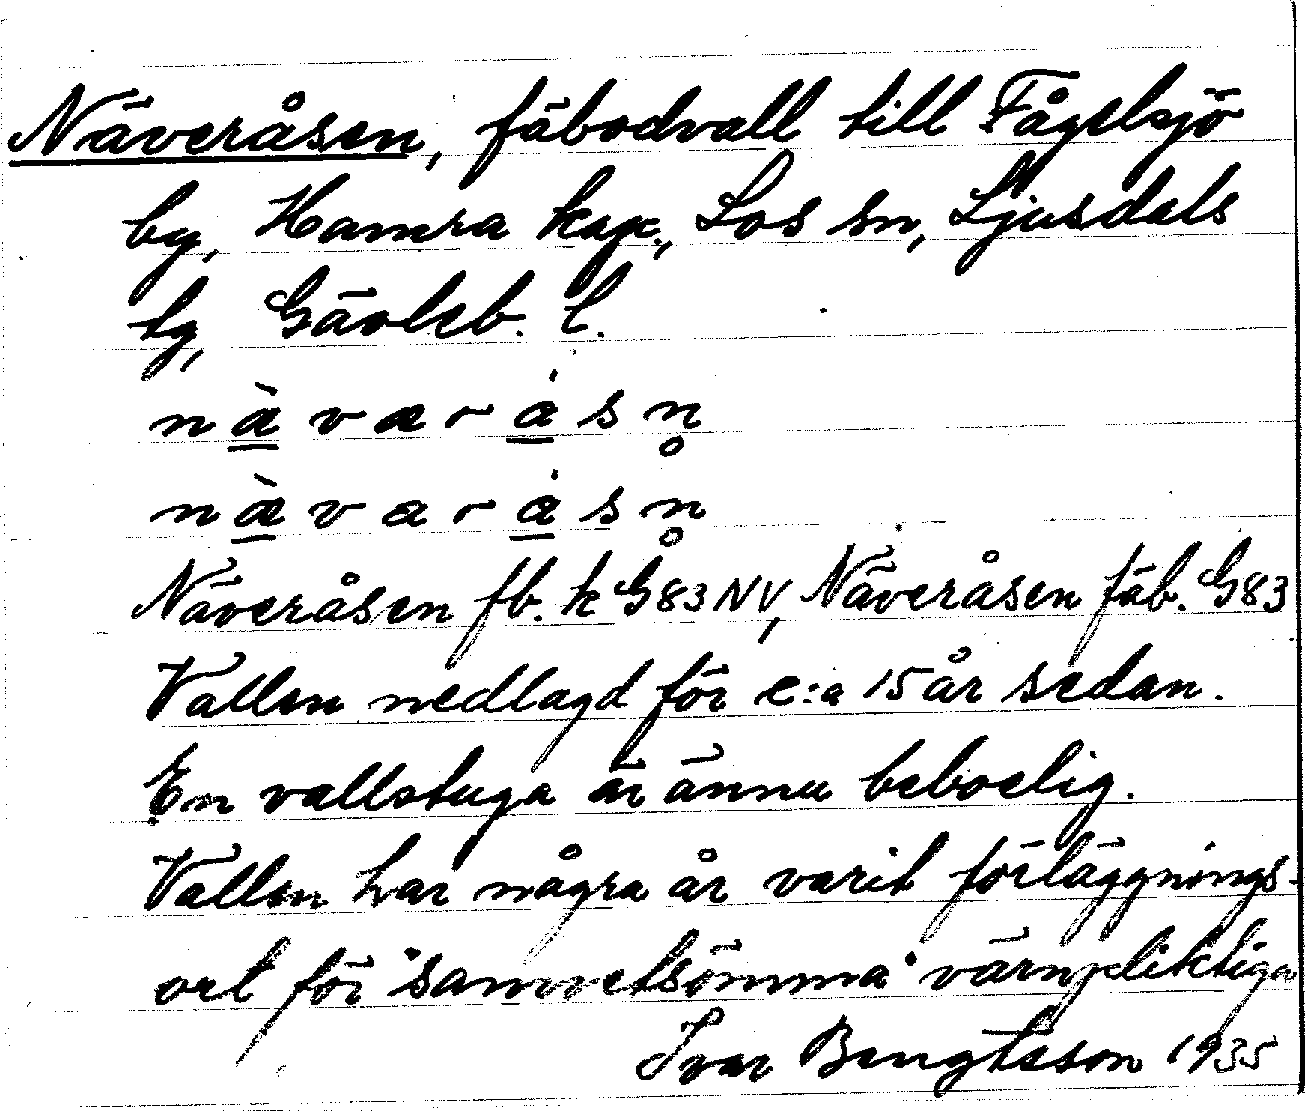 Näveråsen, fäbodvall till Fågelsjö
by, Hamra kap., Los sn, Ljusdals
tg, Gävleb. l.
næ̀værȧsn̥
næ̀varȧsn̥
Näveråsen fb. k G83NV, Näveråsen fäb. G83
Vallen nedlagd för c:a 15 år sedan.
En vallstuga är ännu beboelig.
Vallen har några år varit förläggnings-
ort för "samvetsömma" värnpliktiga
Ivar Bengtsson 1935